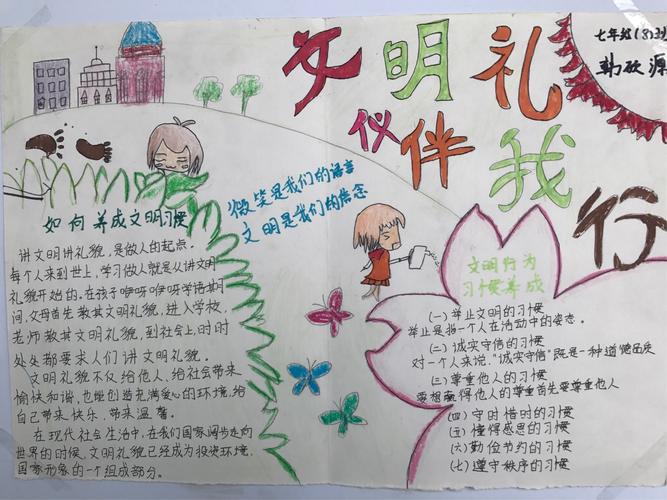 文明礼
伙伴我
行
七年级(8)班
韩欣源
微笑是我们的语言
文明是我们的信念
如何养成文明习惯
讲文明讲礼貌,是做人的起点。
每个人来到世上,学习做人就是从讲文明
礼貌开始的。在孩子咿呀咿呀学语期
间,父母首先教其文明礼貌,进入学校,
老师教其文明礼貌,到社会上,时时
处处都要求人们讲文明礼貌。
文明礼貌不仅给他人、给社会带来
愉快和谐,也能创造充满爱心的环境,给
自己带来快乐、带来温馨。
在现代社会生活中,在我们国家阔步走向
世界的时候,文明礼貌已经成为投资环境、
国家形象的一个组成部分。
文明行为
习惯养成
(一)举止文明的习惯
举止是指一个人在活动中的姿态。
(二)诚实守信的习惯
对一个人来说,"诚实守信"既是一种道德品质
(三)尊重他人的习惯
要想赢得他人的尊重首先要尊重他人
(四)守时惜时的习惯
(五)懂得感恩的习惯
(六)勤俭节约的习惯
(七)遵守秩序的习惯